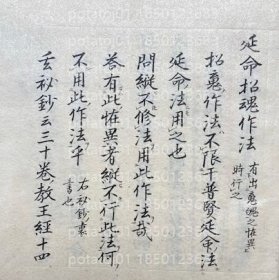 延命招魂作法 有出鬼魄之恠異
時行之
招魂作法不限干普賢延命法
延命法用之也
問縦不修法用此作法哉
答有此恠異者縦不行此法何
不用此作法乎 石秘鈔裏
書也
玄秘鈔云三十卷教王經十四